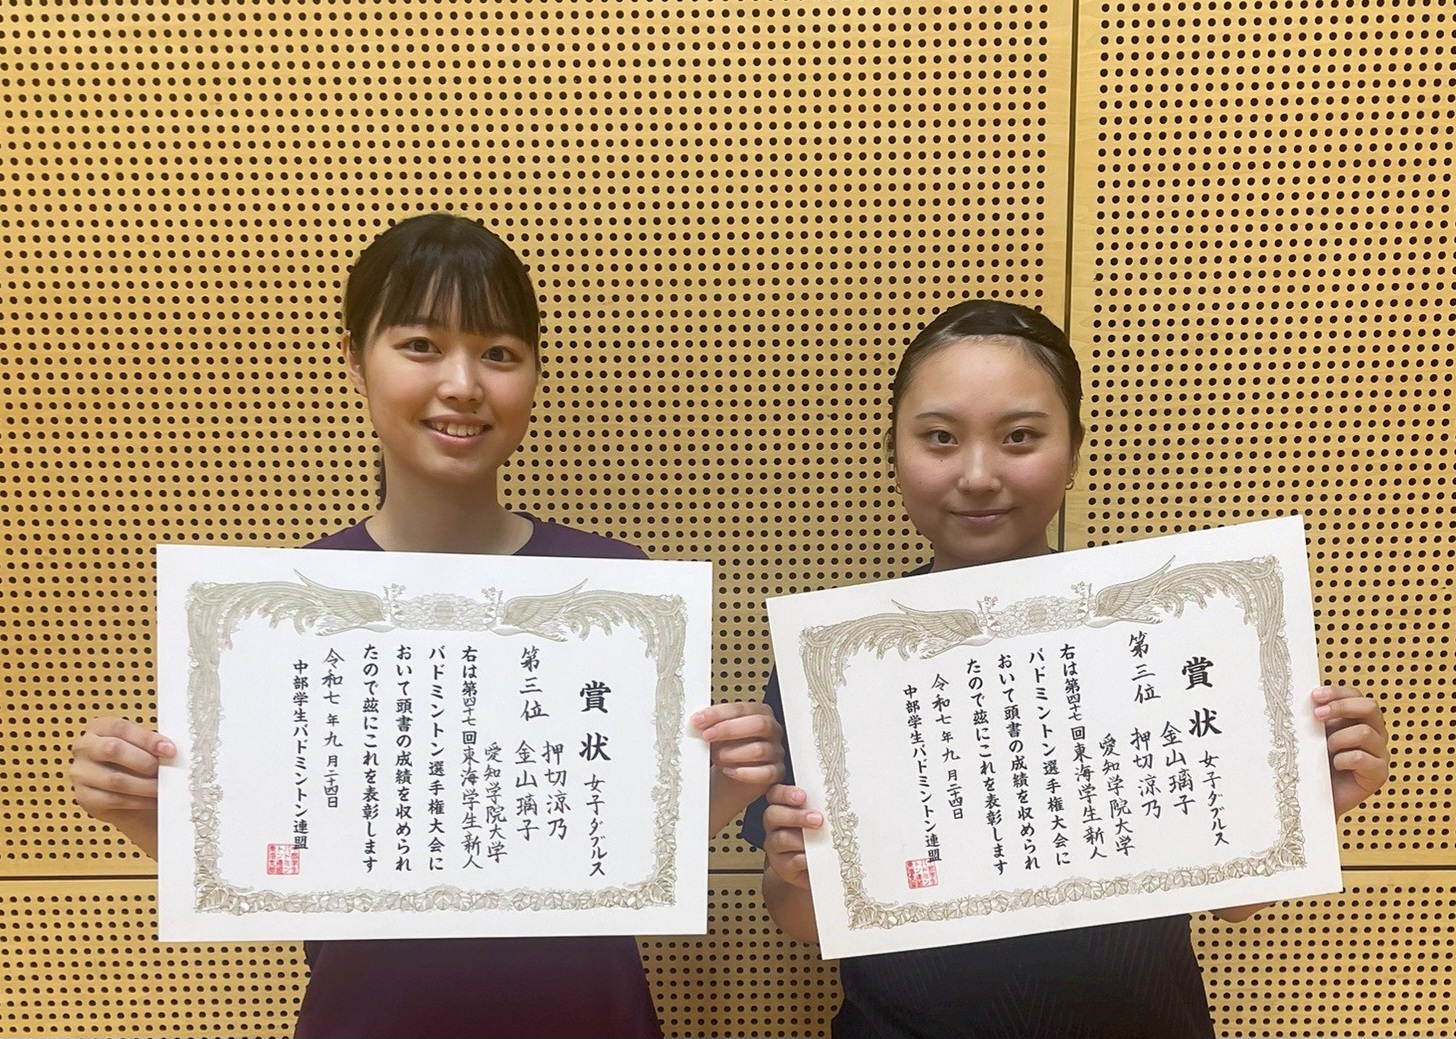 賞状
女子ダブルス
第三位
押切涼乃
金山璃子
愛知学院大学
右は第四十七回東海学生新人
バドミントン選手権大会に
おいて頭書の成績を収められ
たので茲にこれを表彰します
令和七年九月二十四日
中部学生バドミントン連盟
賞状
女子ダブルス
第三位
金山璃子
押切涼乃
愛知学院大学
右は第四十七回東海学生新人
バドミントン選手権大会に
おいて頭書の成績を収められ
たので茲にこれを表彰します
令和七年九月二十四日
中部学生バドミントン連盟